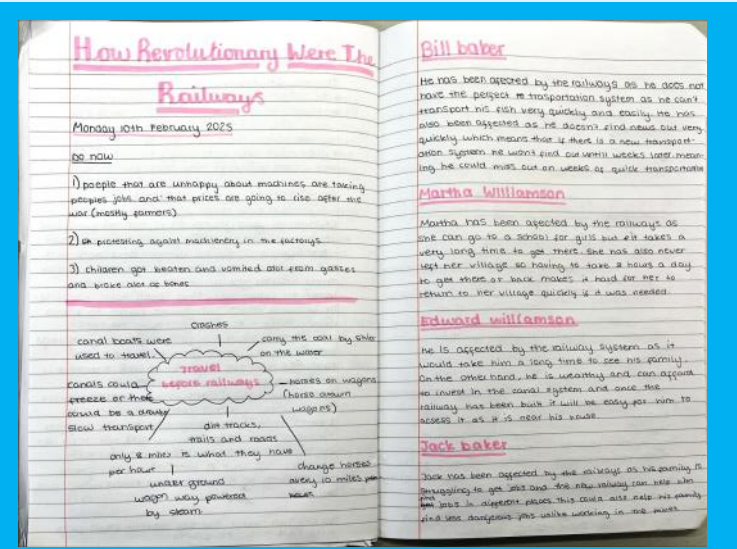 How Revolutionary Were The
Railways
Monday 10th February 2025
Do now
1) poeple that are unhappy about machines are taking
peoples jobs and that prices are going to rise after the
war (mostly farmers)
2) protesting againt machienery in the factorys
3) children got beaten and vomited alot from gasses
and broke alot of bones
Travel
before railways
crashes
carry the coal by ship
on the water
horses on wagons
(horse drawn
wagons)
change horses
every 10 miles
dirt tracks,
trails and roads
under ground
wagon way powered
by steam
only 8 miles is what they have
per hour
canals could
freeze or
could be a
slow transport
canal boats were
used to travel
Bill baker
He has been afected by the railways as he does not
have the perfect trasportation system as he can't
transport his fish very quickly and easily. He has
also been affected as he doesn't find news out very
quickly which means that if there is a new transport-
ation system he won't find out untill weeks later mean-
ing he could miss out on weeks of quick transportation
Martha Williamson
Martha has been afected by the railways as
she can go to a school for girls but it takes a
very long time to get there. She has also never
left her village so having to take 2 hours a day
to get there or back makes it hard for her to
return to her village quickly if it was needed.
Edward williamson
He is affected by the railway system as it
would take him a long time to see his family.
On the other hand, he is wealthy and can afford
to invest in the canal system and once the
railway has been built it will be easy for him to
access it as it is near his house.
Jack baker
Jack has been affected by the railways as his family is
struggling to get jobs and the new railway can help
find jobs in different places. This could also help his family
find less dangerous jobs unlike working in the mines